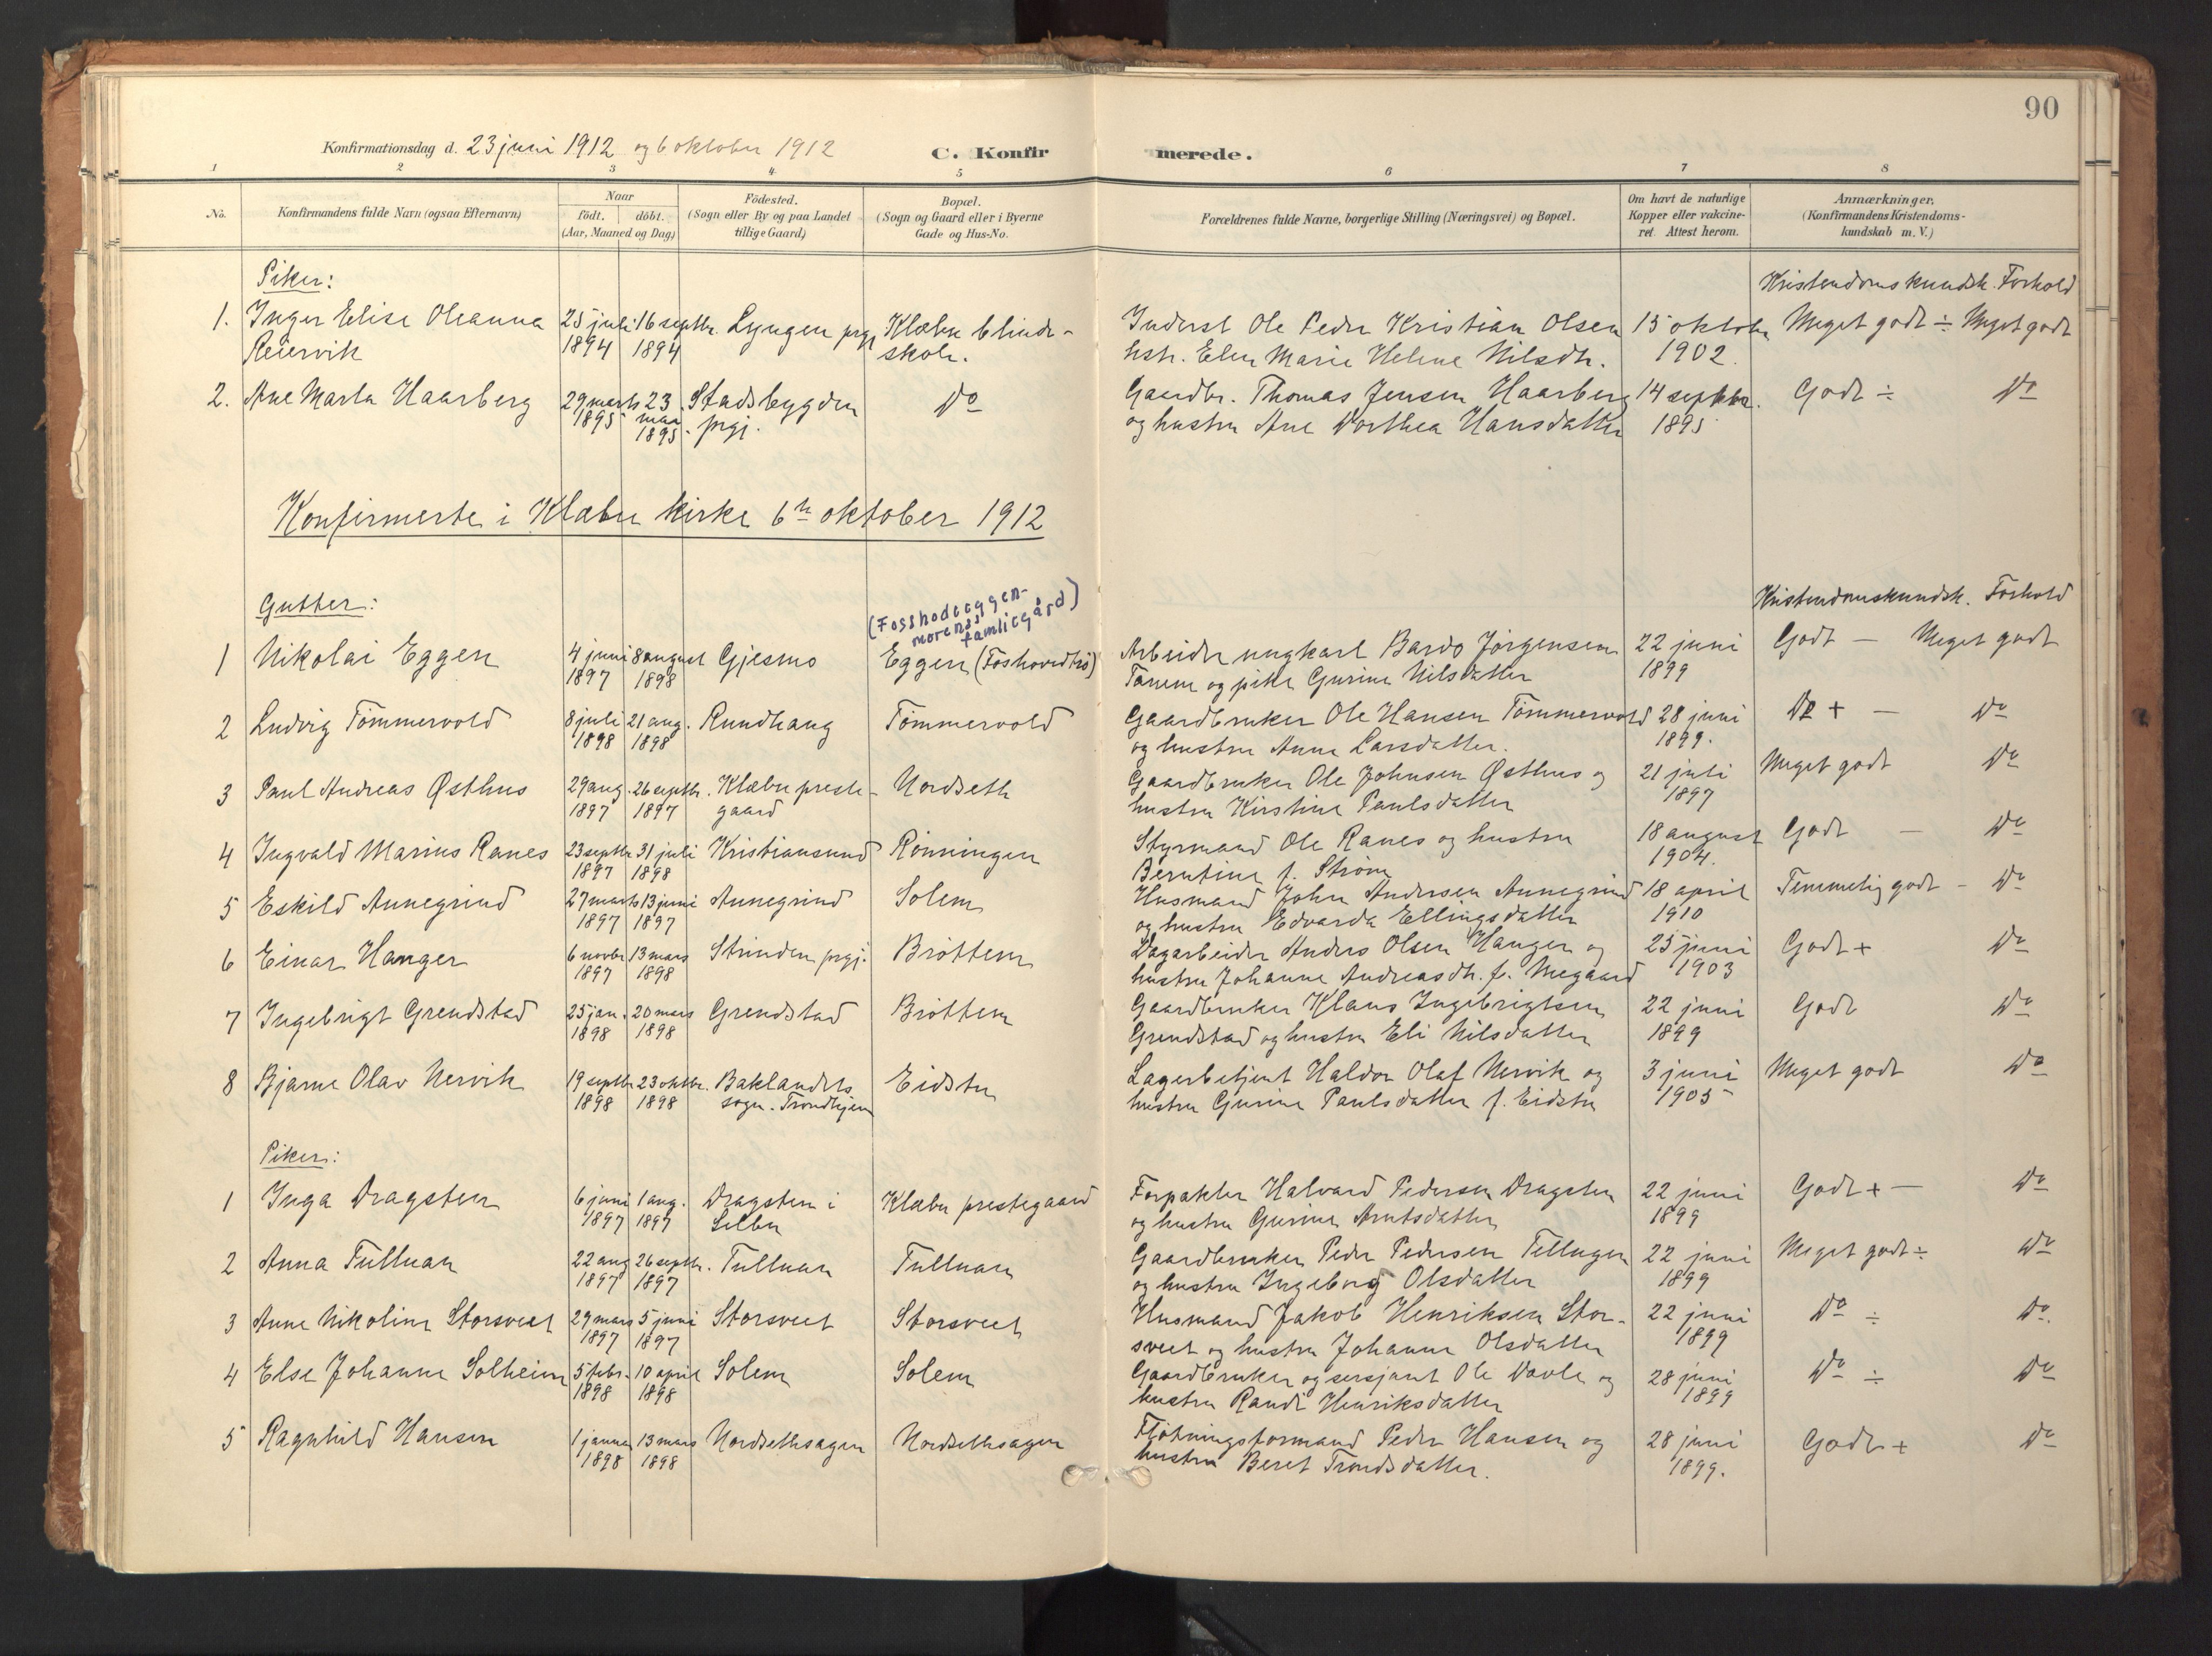 90
Konfirmationsdag d. 23 juni 1912 og 6 oktober 1912
C. Konfirmerede.
1 2 3 4 5 6 7 8
No.
Konfirmandens fulde Navn (ogsaa Efternavn)
Naar
födt. döbt.
(Aar, Maaned og Dag)
Födested.
(Sogn eller By og paa Landet
tillige Gaard)
Bopæl.
(Sogn og Gaard eller i Byerne
Gade og Hus-No.
Forældrenes fulde Navne, borgerlige Stilling (Næringsvei) og Bopæl.
Om havt de naturlige
Kopper eller vakcine-
ret. Attest herom.
Anmærkninger.
(Konfirmandens Kristendoms-
kundskab m. V.)
Piker:
Kristendomskundsk. Forhold
1. Inger Elise Oleanna 25 juli 16 septbr. Lyngen prgj Klæbu blinde- Inderst Ole Peder Kristian Olsen 15 oktober Meget godt ÷ Meget godt
Reiervik 1894 1894 skole. hstr. Elen Marie Helene Nilsdtr. 1902.
2. Ane Marta Haarberg 29 marts 23 Stadsbygden Do Gaardbr. Thomas Jensen Haarberg 14 septbr. Godt ÷ Do
1895 mai 1895 prgj. og hustru Ane Dorthea Hansdatter 1895
Konfirmerte i Klæbu kirke 6te oktober 1912
Gutter:
(Fosshodeeggen-
morenss
familiegård)
Kristendomskundsk. Forhold
1 Nikolai Eggen 4 juni 8 august Gjesmo Eggen (Foshovedtrø) Arbeider ungkarl Bardo Jörgensen 22 juni Godt — Meget godt
1897 1898 Tanem og pike Gurine Nilsdatter 1899
2 Ludvig Tömmervold 8 juli 21 aug. Rundhaug Tömmervold Gaardbruker Ole Hansen Tömmervold 28 juni Do + — Do
1898 1898 og hustru Anne Larsdatter. 1899.
3 Paul Andreas Østhus 29 aug. 26 septbr. Klæbu preste- Nordseth Gaardbruker Ole Johnsen Østhus og 21 juli Meget godt Do
1897 1897 gaard hustru Kirstine Paulsdatter 1897
4 Ingvald Marius Ranes 23 septbr 31 juli Kristiansund Rönningen Styrmand Ole Ranes og hustru 18 august Godt — Do
1897 1898 Berntine f. Ström 1904.
5 Eskild Annegrind 27 marts 13 juni Annegrind Solem Husmand John Andersen Annegrind 18 april Temmelig godt — Do
1897 1897 og hustru Edvarda Ellingsdatter 1910
6 Einar Hanger 6 novbr 13 mars Strinden prgj. Bröttem Dagarbeider Anders Olsen Hanger og 25 juni Godt + Do
1897 1898 hustru Johanne Andreasdtr. f. Megaard 1903
7 Ingebrigt Grendstad 25 jan. 20 mars Grendstad Bröttem Gaardbruker Klaus Ingebrigtsen 22 juni Godt Do
1898 1898 Grendstad og hustru Eli Nilsdatter 1899
8 Bjarne Olav Nervik 19 septbr 23 oktbr. Baklandets Eidstu Lagerbetjent Haldor Olaf Nervik og 3 juni Meget godt Do
1898 1898 sogn. Trondhjem hustru Gurine Paulsdatter f. Eidstu 1905
Piker:
1 Inga Dragsten 6 juni 1 aug. Dragsten i Klæbu prestegaard Forpakter Halvard Pedersen Dragsten 22 juni Godt + — Do
1897 1897 Selbu og hustru Gurine Arntsdatter 1899
2 Anna Tulluan 22 aug 26 septbr. Tulluan Tulluan Gaardbruker Peder Pedersen Tellugen 22 juni Meget godt ÷ Do
1897 1897 og hustru Ingeborg Olsdatter 1899
3 Anne Nikoline Storsveet 29 mars 5 juni Storsveet Storsveet Husmand Jakob Henriksen Stor- 22 juni Do ÷ Do.
1897 1897 sveet og hustru Johanne Olsdatter 1899
4 Else Johanne Solheim 5 febr. 10 april Solem Solem Gaardbruker og sersjant Ole Davle og 28 juni Do ÷ Do
1898 1898 hustru Randi Henriksdatter 1899
5 Ragnhild Hansen 1 januar 13 mars Nordsethsagen Nordsethsagen Flötningsformand Peder Hansen og 28 juni Godt + Do
1898 1898 hustru Beret Trondsdatter. 1899.